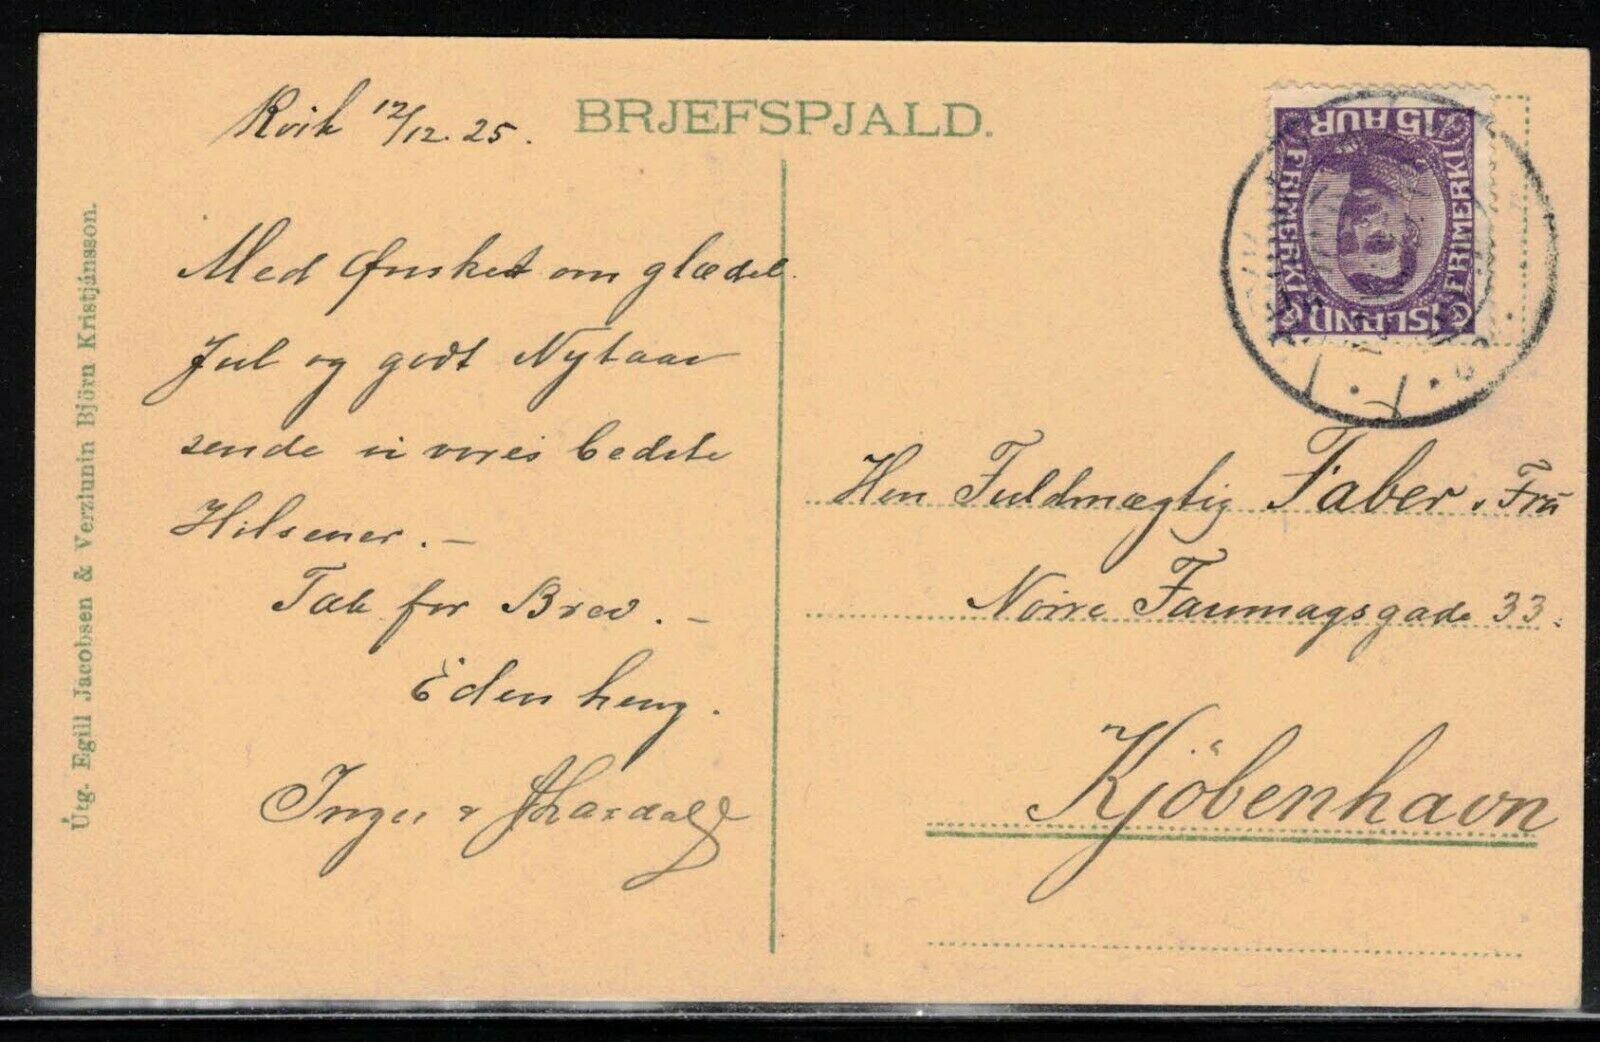 Rvik 12/12. 25.
BRJEFSPJALD.
15 AUR
FRIMERKI
FRIMERKI
ISLAND
Med Ønsket om glædel.
Jul og godt Nytaar
sende vi vores bedste
Hilsener. —
Tak for Brev. —
Eders heng.
Inger &
Herr Fuldmægtig Faber & Frú
Nörre Farimagsgade 33.
Kjöbenhavn
Útg. Egill Jacobsen & Verzlunin Björn Kristjánsson.